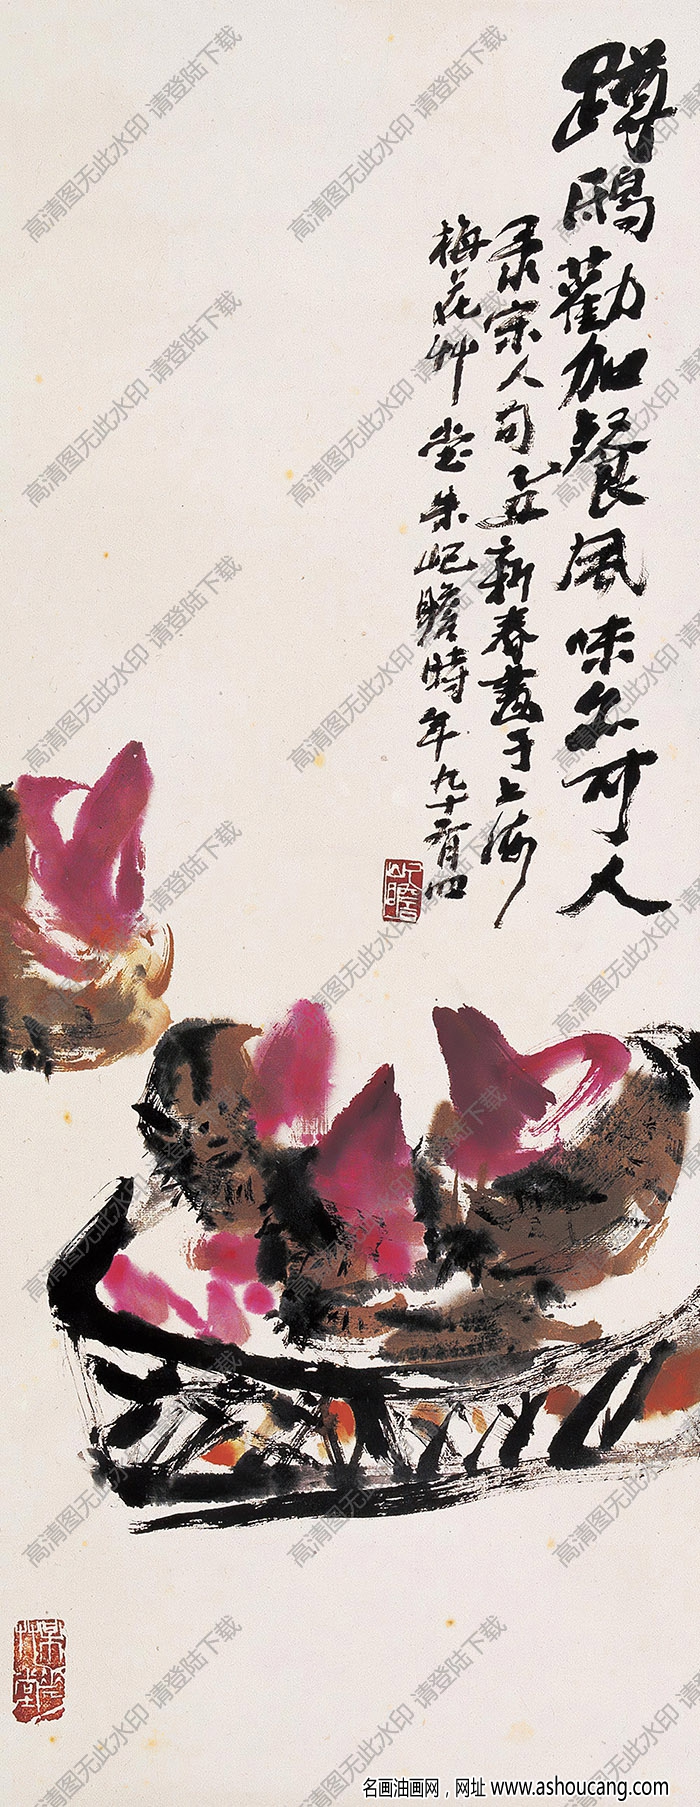 蹲鸱勸加餐風味分可人
录宋人句乙丑新春畫于上海
梅花艸堂朱屺瞻時年九十有四
屺瞻
梅花草堂
高清图无此水印 请登陆下载
名画油画网，网址 www.ashoucang.com